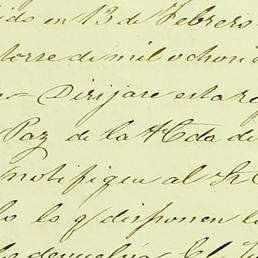 ido en 13 de Febrero
torse de mil ochon
Dirijase esta re
Paz de la Hda de
notifique al Sr
lo lo q/ disponen l
devuelva El